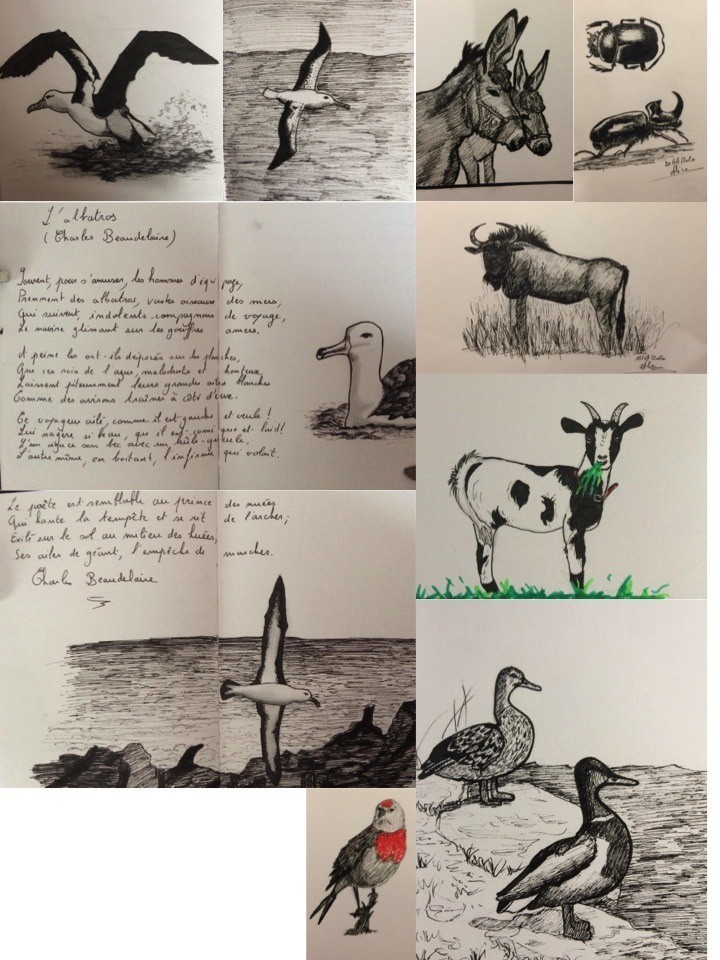 L'albatros
(Charles Beaudelaire)
Souvent, pour s'amuser, les hommes d'équipage,
Prennent des albatros, vastes oiseaux des mers,
Qui suivent, indolents compagnons de voyage,
Le navire glissant sur les gouffres amers.
A peine les ont-ils déposés sur les planches,
Que ces rois de l'azur, maladroits et honteux,
Laissent piteusement leurs grandes ailes blanches
Comme des avirons traîner à côté d'eux.
Ce voyageur ailé, comme il est gauche et veule!
Lui naguère si beau, qu'il est comique et laid!
L'un agace son bec avec un brûle-gueule,
L'autre mime, en boitant, l'infirme qui volait.
Le poète est semblable au prince des nuées
Qui hante la tempête et se rit de l'archer;
Exilé sur le sol au milieu des huées,
Ses ailes de géant, l'empêche de marcher.
Charles Beaudelaire